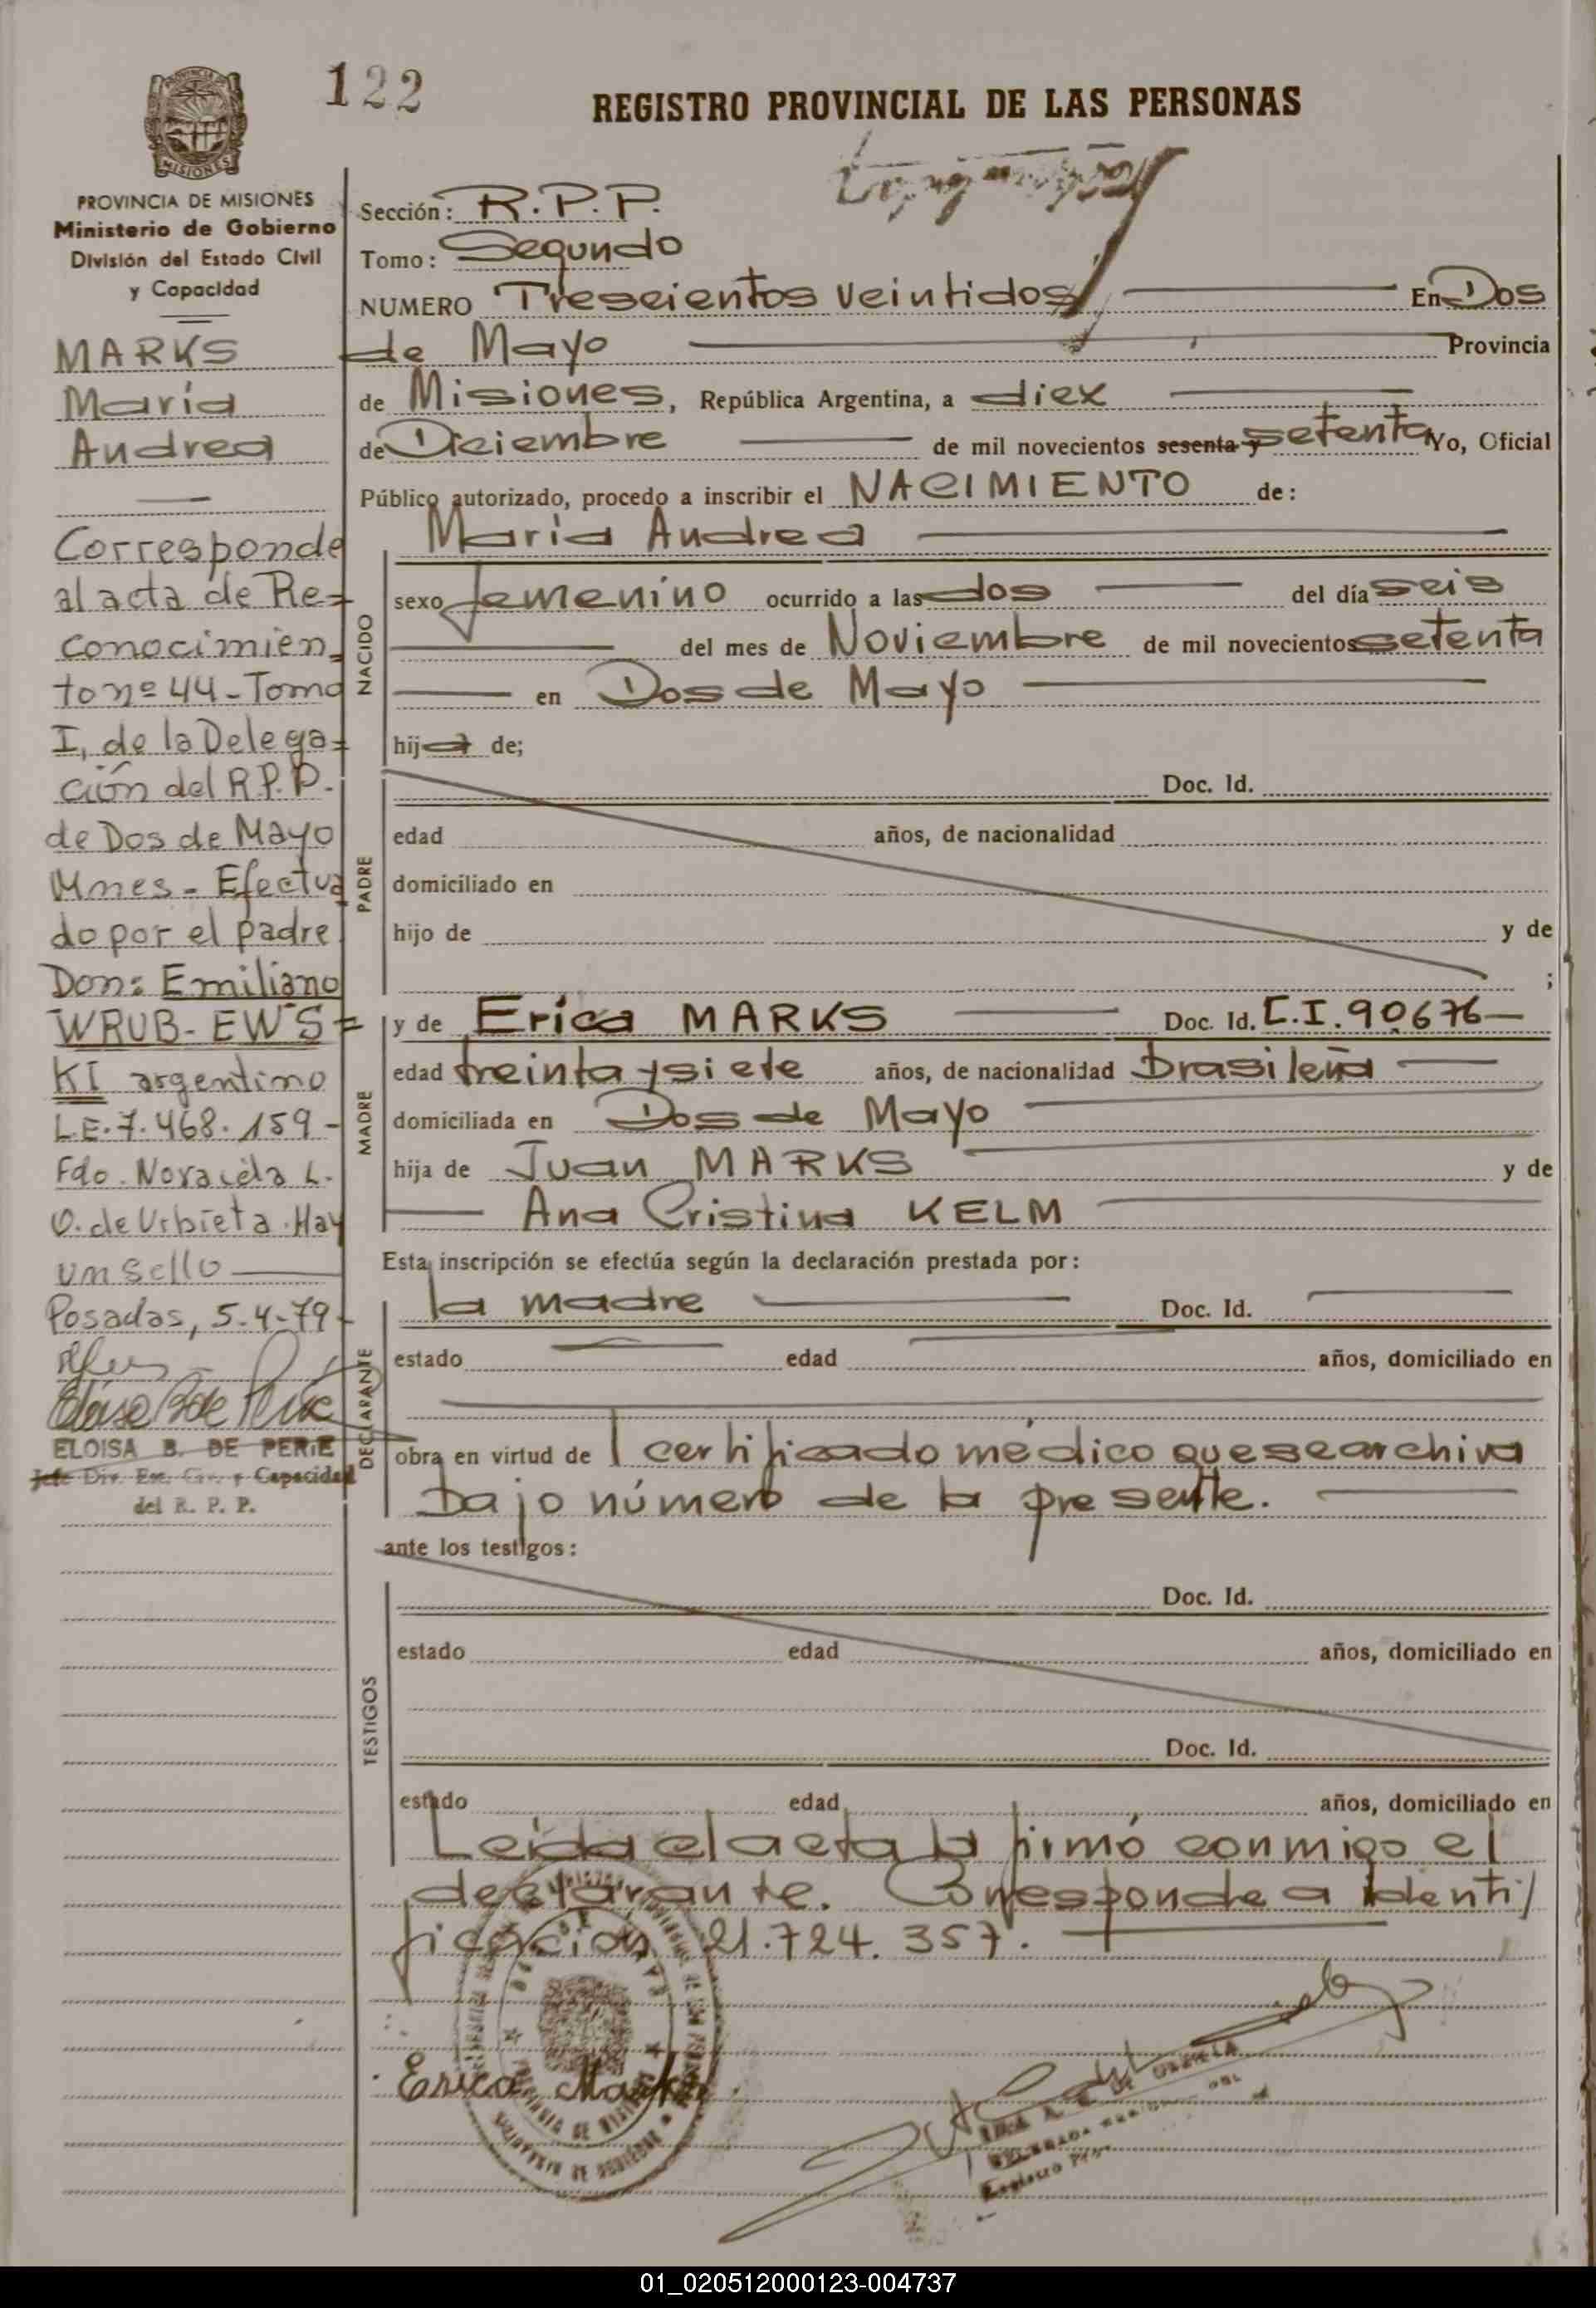 122
REGISTRO PROVINCIAL DE LAS PERSONAS
MISIONES
PROVINCIA DE MISIONES
Ministerio de Gobierno
División del Estado Civil
y Capacidad
MARKS
María
Andrea
Corresponde
al acta de Re=
conocimien=
to nº 44-Tomo
I, de la Delega=
ción del R.P.P.
de Dos de Mayo
Mnes-Efectua
do por el padre
Don: Emiliano
WRUB-EWS=
KI argentino
L.E.7.468.159-
Fdo. Noracida L.
O. de Urbieta. Hay
un sello
Posadas, 5-4-79-
ELOISA B. DE PERIE
Jefe Div. Est. Civ. y Capacidad
del R. P. P.
Sección: R.P.P.
Tomo: Segundo
NUMERO Trescientos veintidos En Dos
de Mayo Provincia
de Misiones, República Argentina, a diez
de Diciembre de mil novecientos sesenta y setenta Yo, Oficial
Público autorizado, procedo a inscribir el NACIMIENTO de:
María Andrea
NACIDO
sexo femenino ocurrido a las dos del día seis
del mes de Noviembre de mil novecientos setenta
en Dos de Mayo
hija de;
PADRE
Doc. Id.
edad años, de nacionalidad
domiciliado en
hijo de y de
;
MADRE
y de Erica MARKS Doc. Id. C.I. 90676
edad treinta y siete años, de nacionalidad brasileña
domiciliada en Dos de Mayo
hija de Juan MARKS y de
Ana Cristina KELM
Esta inscripción se efectúa según la declaración prestada por:
DECLARANTE
la madre Doc. Id.
estado edad años, domiciliado en
obra en virtud de 1 certificado médico que se archiva
bajo número de la presente.
ante los testigos:
TESTIGOS
Doc. Id.
estado edad años, domiciliado en
Doc. Id.
estado edad años, domiciliado en
Leída el acta la firmó conmigo el
declarante. Corresponde a identi/
ficación 21.724.357.
Erica Marks
01_020512000123-004737